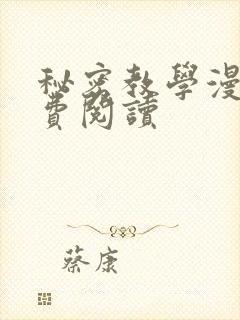 秘密教學漫
費閱讀
蔡康